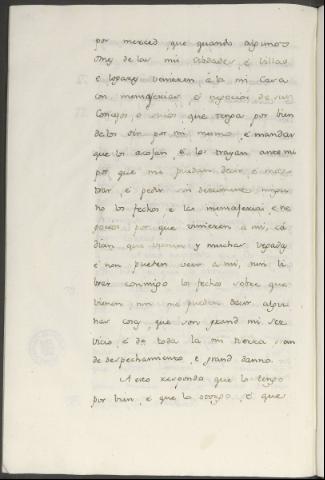 por merced, que quando algunos
omes de las mis cibdades, é villas
é logares vinieren á la mi Casa
con mensagerias, é negocios de sus
Concejos, o suios, que tenga por bien
de los oir por mi mesmo, é mandar
que los acojan, é los trayan ante mi
por que me puedan decir, é mos
trar, é pedir sin detenimiento ningu
no los fechos, é las mensagerias, é ne
gocios por que vinieren a mi, ca
dian que vienen y muchas vegadas
é non pueden veer a mi, nin li
brar conmigo los fechos sobre que
vienen nin me pueden decir algu
nas cosas, que son grand mi ser
vicio, é de toda la mi tierra son
de despechamiento, e grand danno.
A esto respondo que lo tengo
por bien, é que lo otorgo, é que